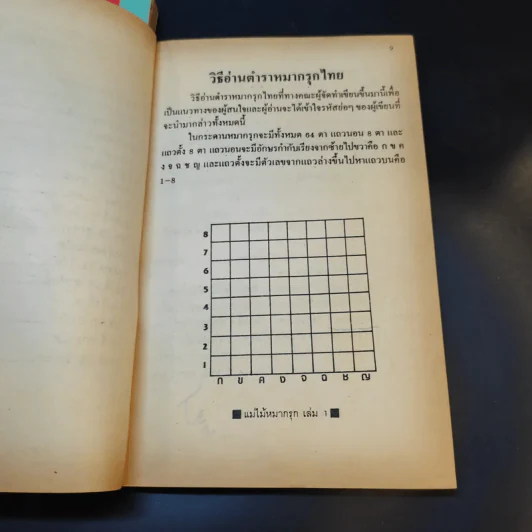 9
วิธีอ่านตำราหมากรุกไทย
วิธีอ่านตำราหมากรุกไทยที่ทางคณะผู้จัดทำเขียนขึ้นมานี้เพื่อ
เป็นแนวทางของผู้สนใจและผู้อ่านจะได้เข้าใจรหัสย่อๆ ของผู้เขียนที่
จะนำมากล่าวทั้งหมดนี้
ในกระดานหมากรุกจะมีทั้งหมด 64 ตา แถวนอน 8 ตา และ
แถวตั้ง 8 ตา แถวนอนจะมีอักษรกำกับเรียงจากซ้ายไปขวาคือ ก ข ค
ง จ ฉ ช ญ และแถวตั้งจะมีตัวเลขจากแถวล่างขึ้นไปหาแถวบนคือ
1-8
8
7
6
5
4
3
2
1
ก ข ค ง จ ฉ ช ญ
แม่ไม้หมากรุก เล่ม 1